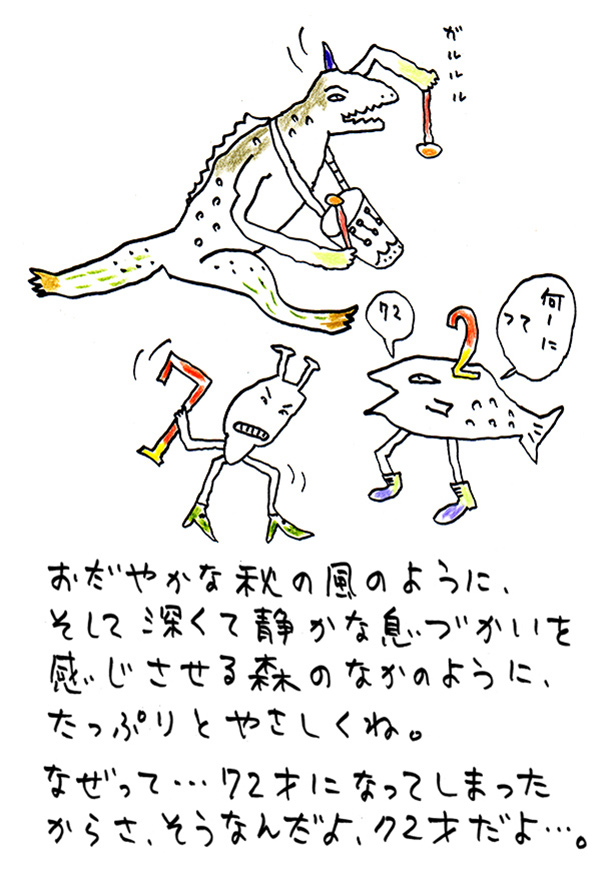 ガルルル
72
何ーに
って
7
2
おだやかな秋の風のように、
そして深くて静かな息づかいを
感じさせる森のなかのように、
たっぷりとやさしくね。
なぜって…72才になってしまった
からさ、そうなんだよ、72才だよ…。